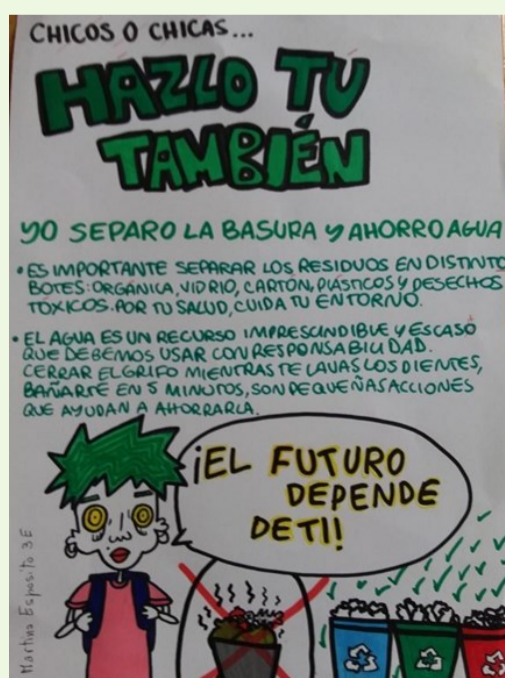 CHICOS O CHICAS...
HAZLO TU
TAMBIÉN
YO SEPARO LA BASURA Y AHORRO AGUA
• ES IMPORTANTE SEPARAR LOS RESIDUOS EN DISTINTO
BOTES: ORGÁNICA, VIDRIO, CARTÓN, PLÁSTICOS Y DESECHOS
TÓXICOS. POR TU SALUD, CUIDA TU ENTORNO.
• EL AGUA ES UN RECURSO IMPRESCINDIBLE Y ESCASO
QUE DEBEMOS USAR CON RESPONSABILIDAD.
CERRAR EL GRIFO MIENTRAS TE LAVAS LOS DIENTES,
BAÑARTE EN 5 MINUTOS, SON PEQUEÑAS ACCIONES
QUE AYUDAN A AHORRARLA.
¡EL FUTURO
DEPENDE
DE TI!
Martina Esposito 3E